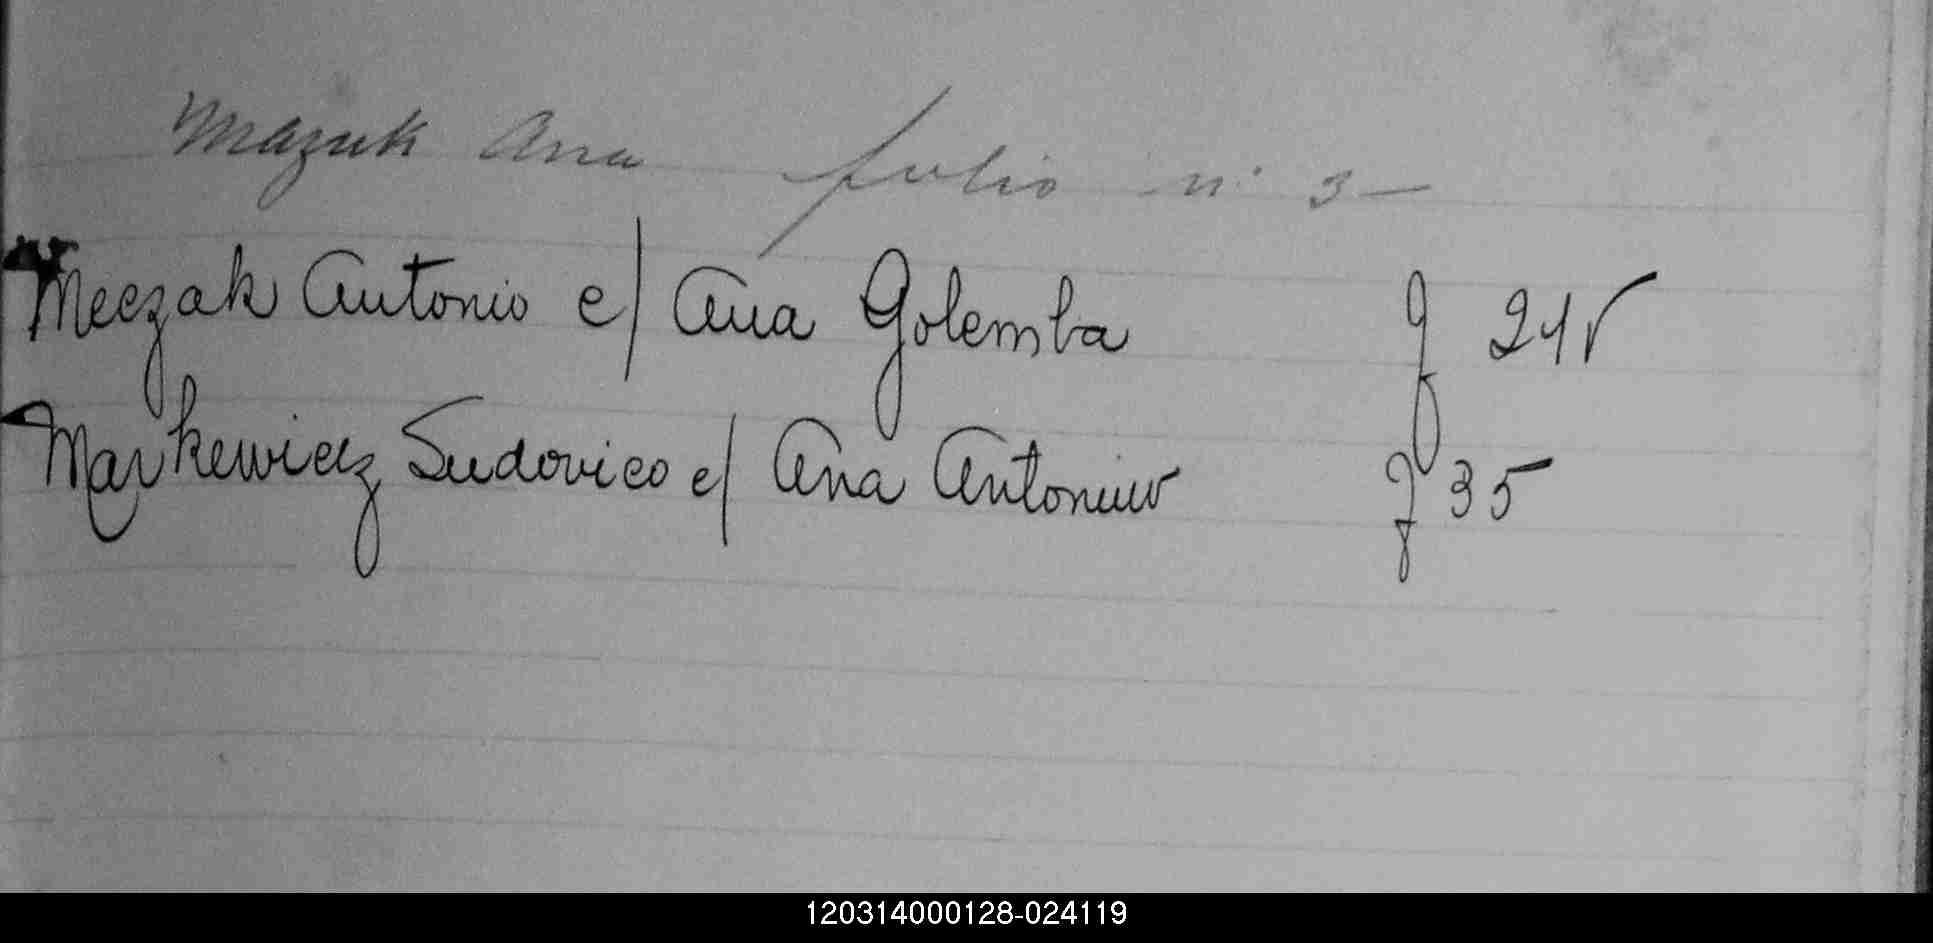 Mazuk Ana folio n. 3 —
Meczak Antonio c/ Ana Golemba f 21v
Markewicz Ludovico c/ Ana Antoniuv f 35
120314000128-024119